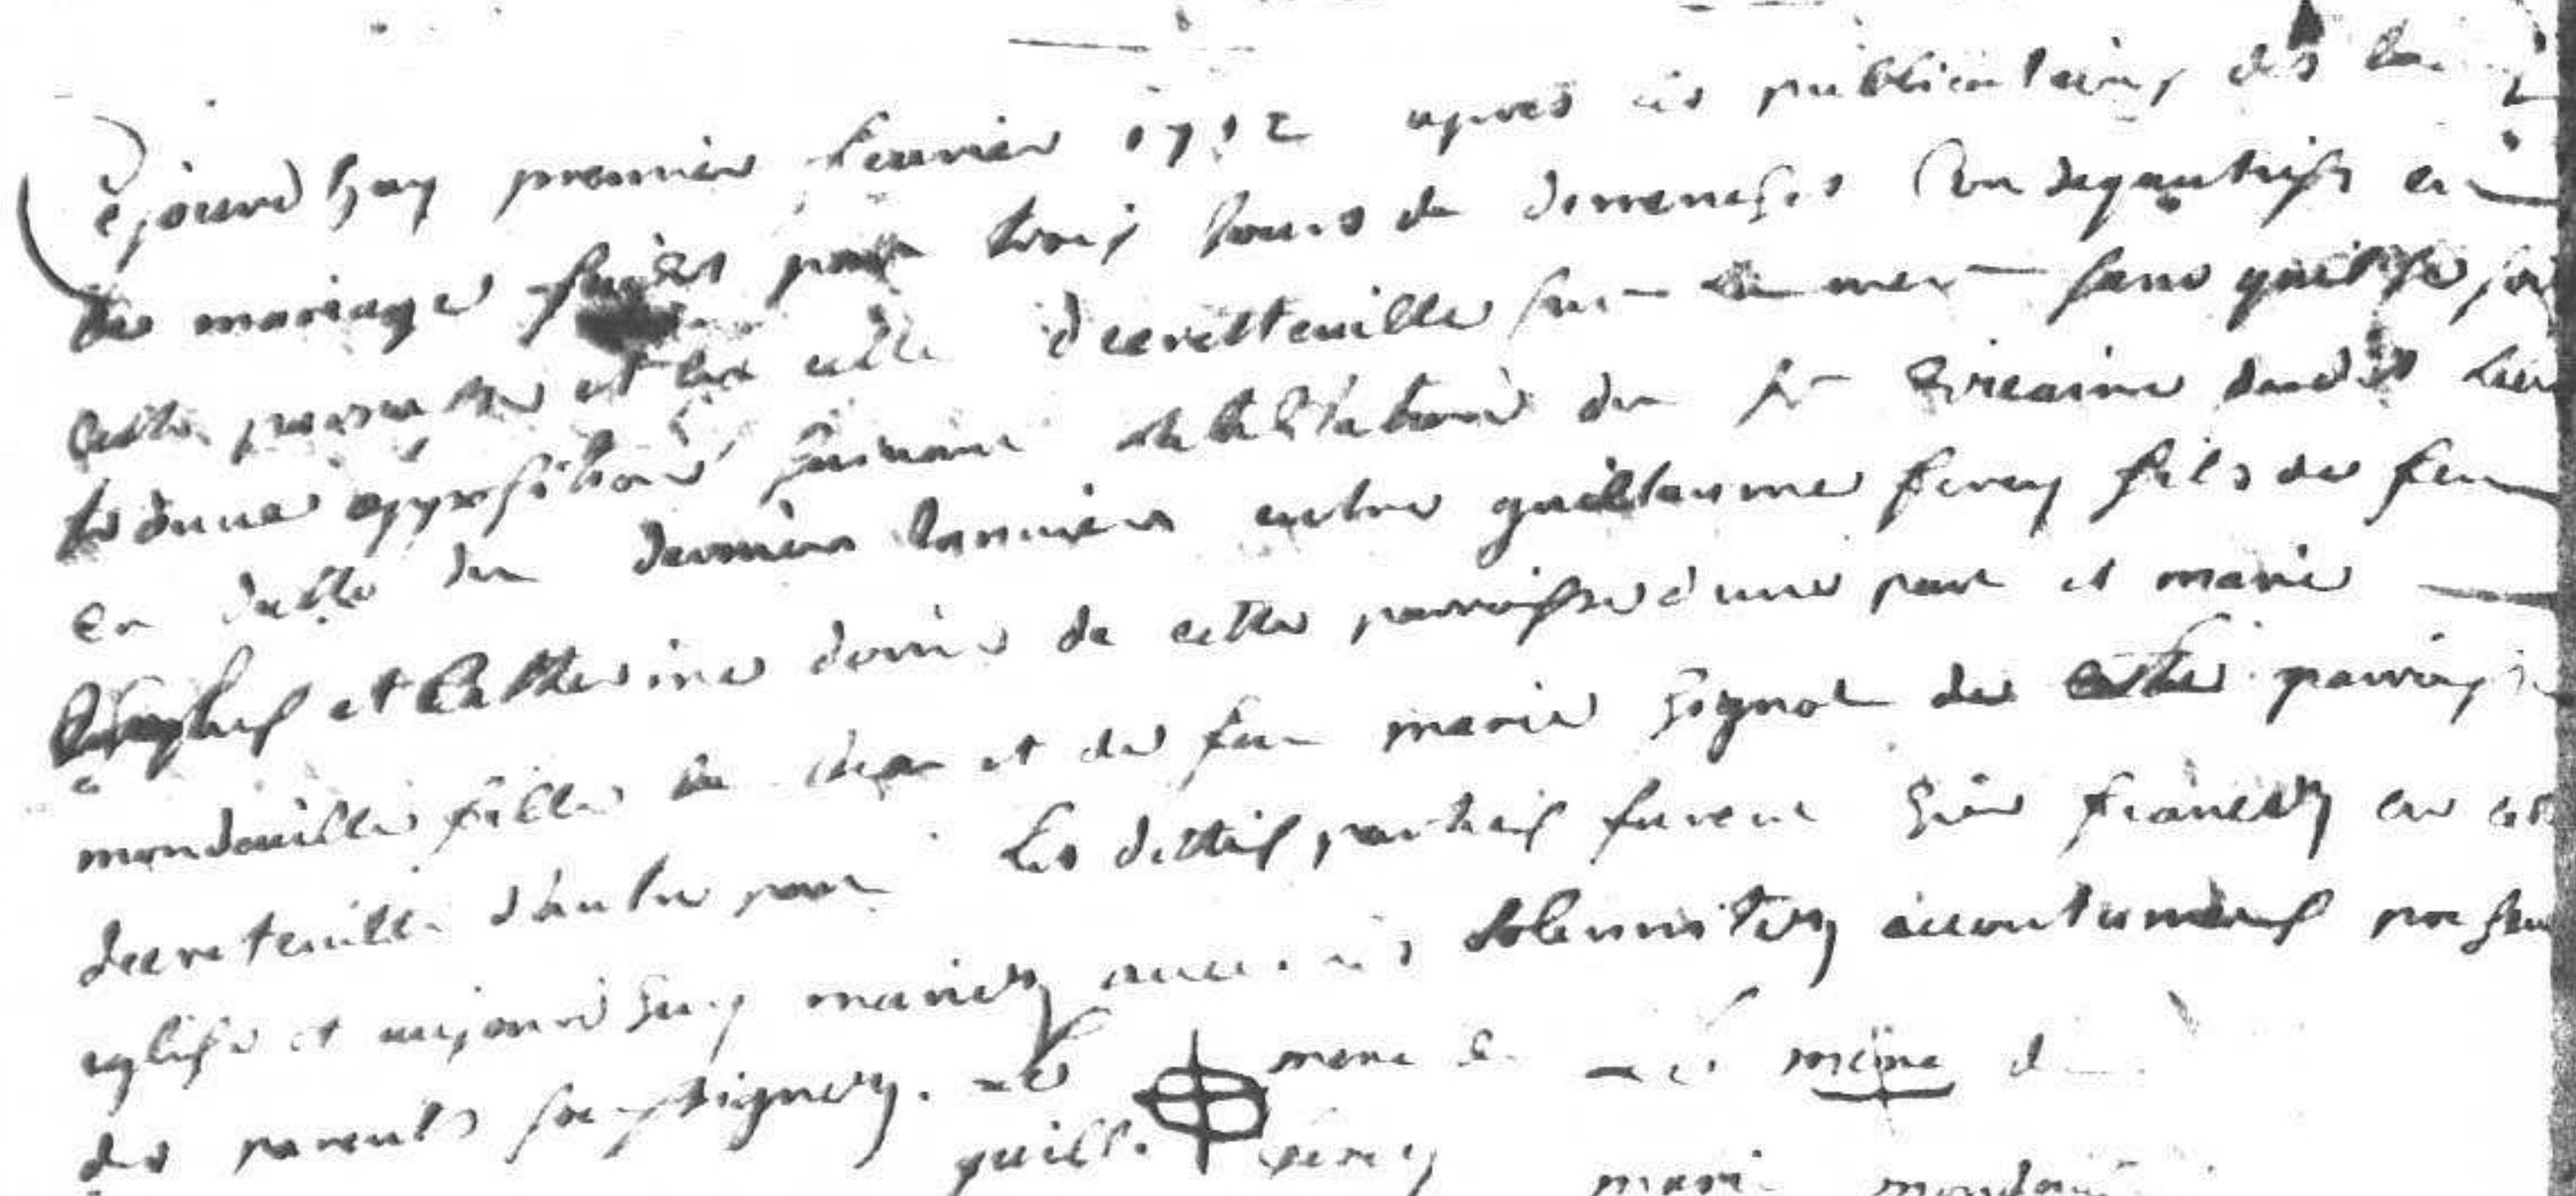 Cejourdhuy premier feurier 1712 apres les publications des bans
de mariage faictes par trois jours de dimenches consequutifs en
cette parroisse et en celle decretteuille sur la mer sans quil se soit
dune opposition suiuant du sr vicaire dudit lieu
en datte du dernier Januier entre guillaume ferey fils de feu
et Catherine de cette parroisse dune part et marie
mondouille fille de Jean et de feu marie hignot de cette parroisse
decreteuille dautre part Les dittes parties furent hier fiancez en cette
eglise et aujourdhuy mariez auec les solemnitez accoutumees presence
des parents soussignez. le merc de le merc d
guill. ferey marie mondouille